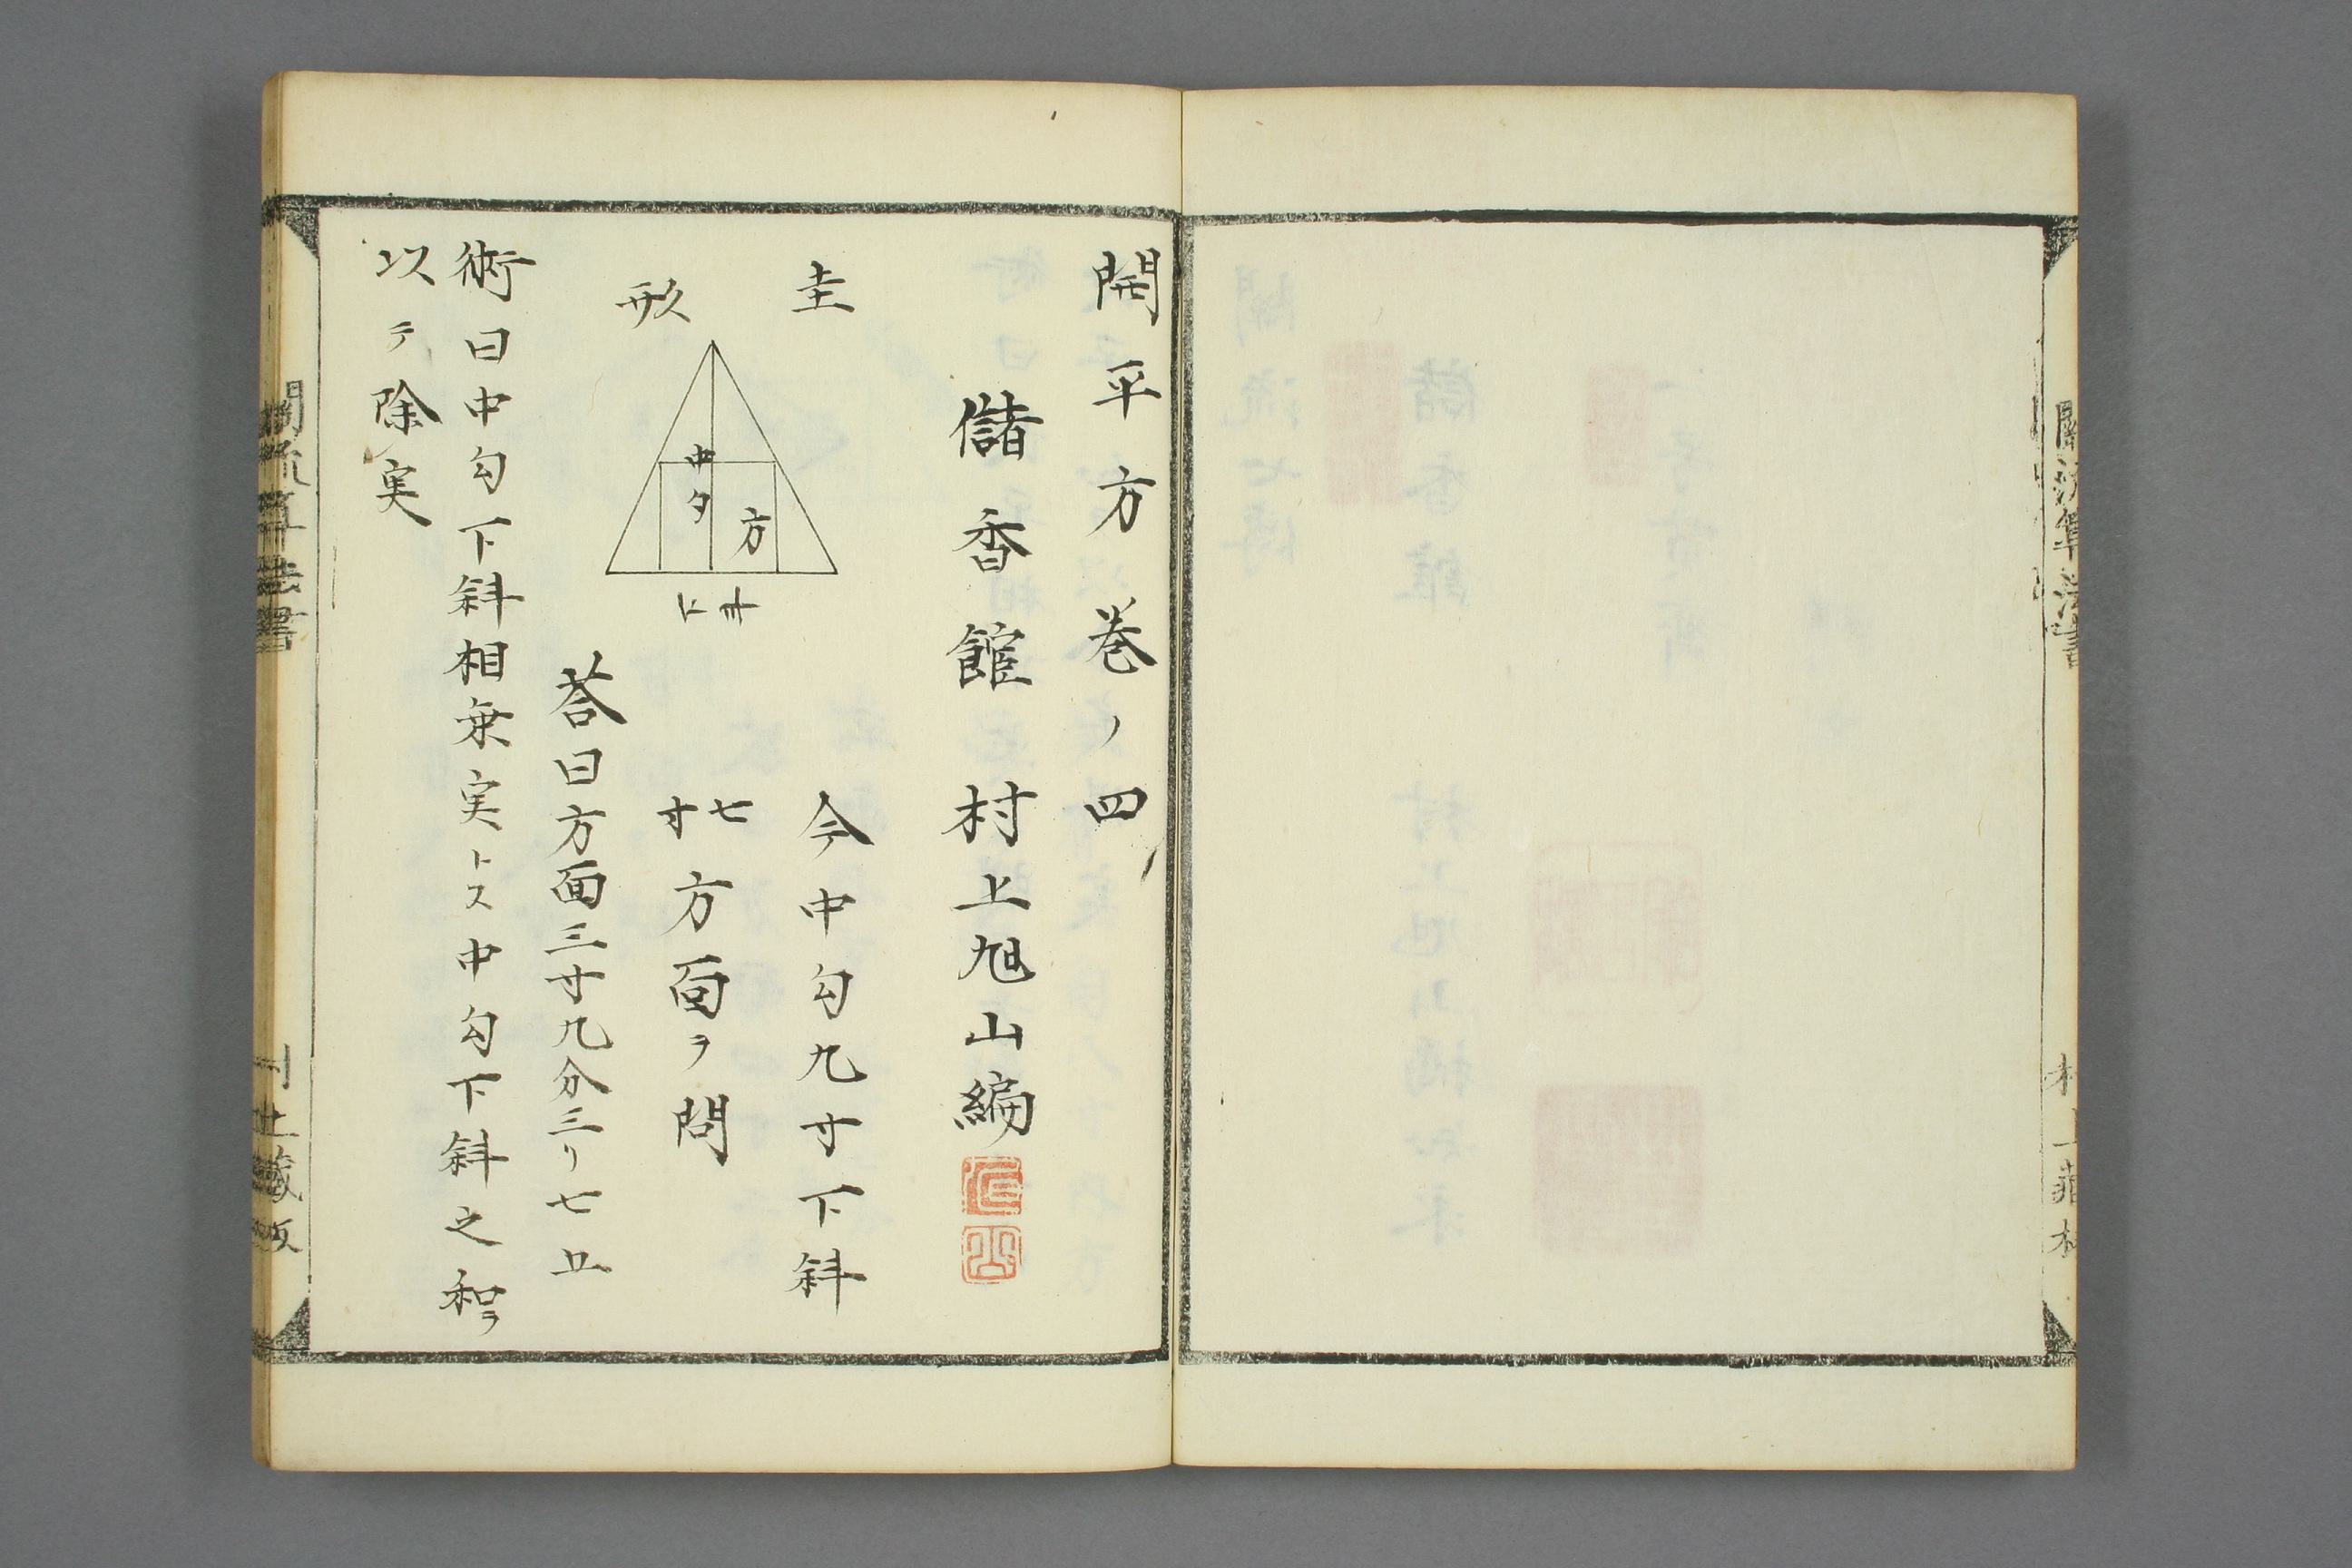 開平方巻ノ四
儲香館 村上旭山編
圭形
中勾
方
下斜
今中勾九寸下斜
七寸方面ヲ問
荅曰方面三寸九分三リ七五
術曰中勾下斜相乗実トス中勾下斜之和ヲ
以テ除実